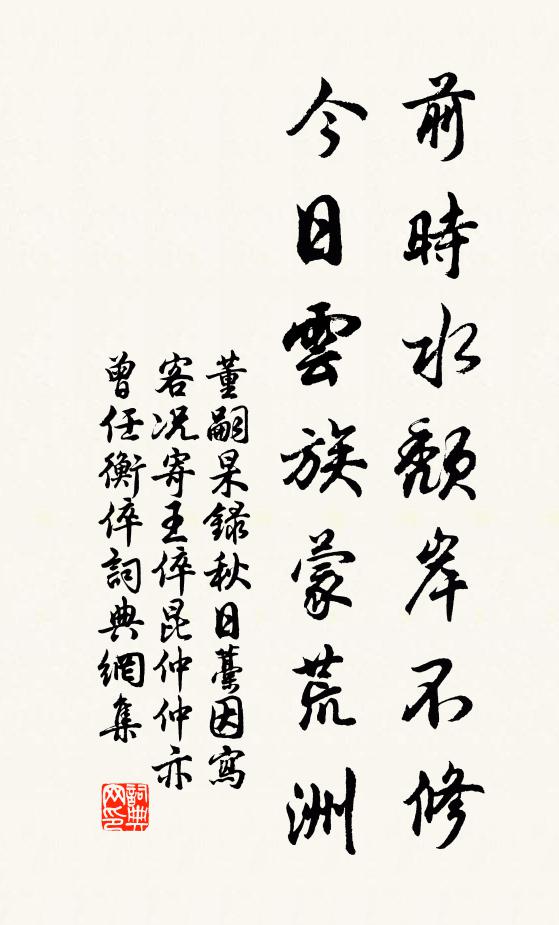 前時水頹岸不修
今日雲族蒙荒洲
董嗣杲錄秋日藁因寫
客况寄王倅昆仲仲亦
曾任衡倅詞典網集
詞典网印